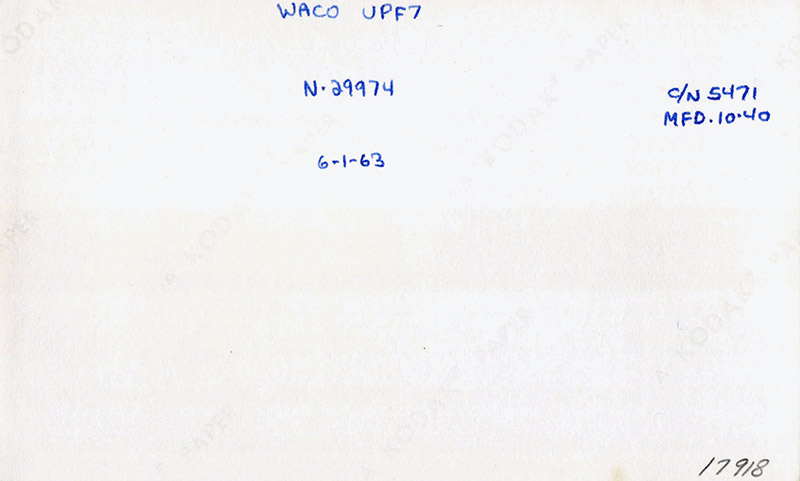 WACO UPF7
N·29974
C/N 5471
MFD.10·40
6-1-63
A KODAK® PAPER
17918